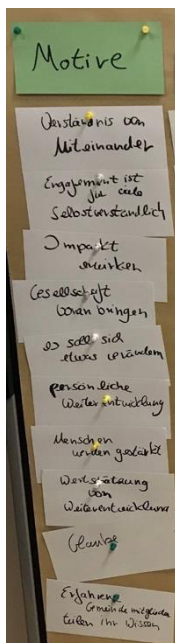 Motive
Verständnis von
Miteinander
Engagement ist
für viele
Selbstverständlich
Impakt
erwirken
Gesellschaft
voran bringen
es soll sich
etwas verändern
persönliche
Weiterentwicklung
Menschen
werden gestärkt
Wertschätzung
von
Weiterentwicklung
Glaube
Erfahrene
Gemeindemitglieder
teilen ihr Wissen